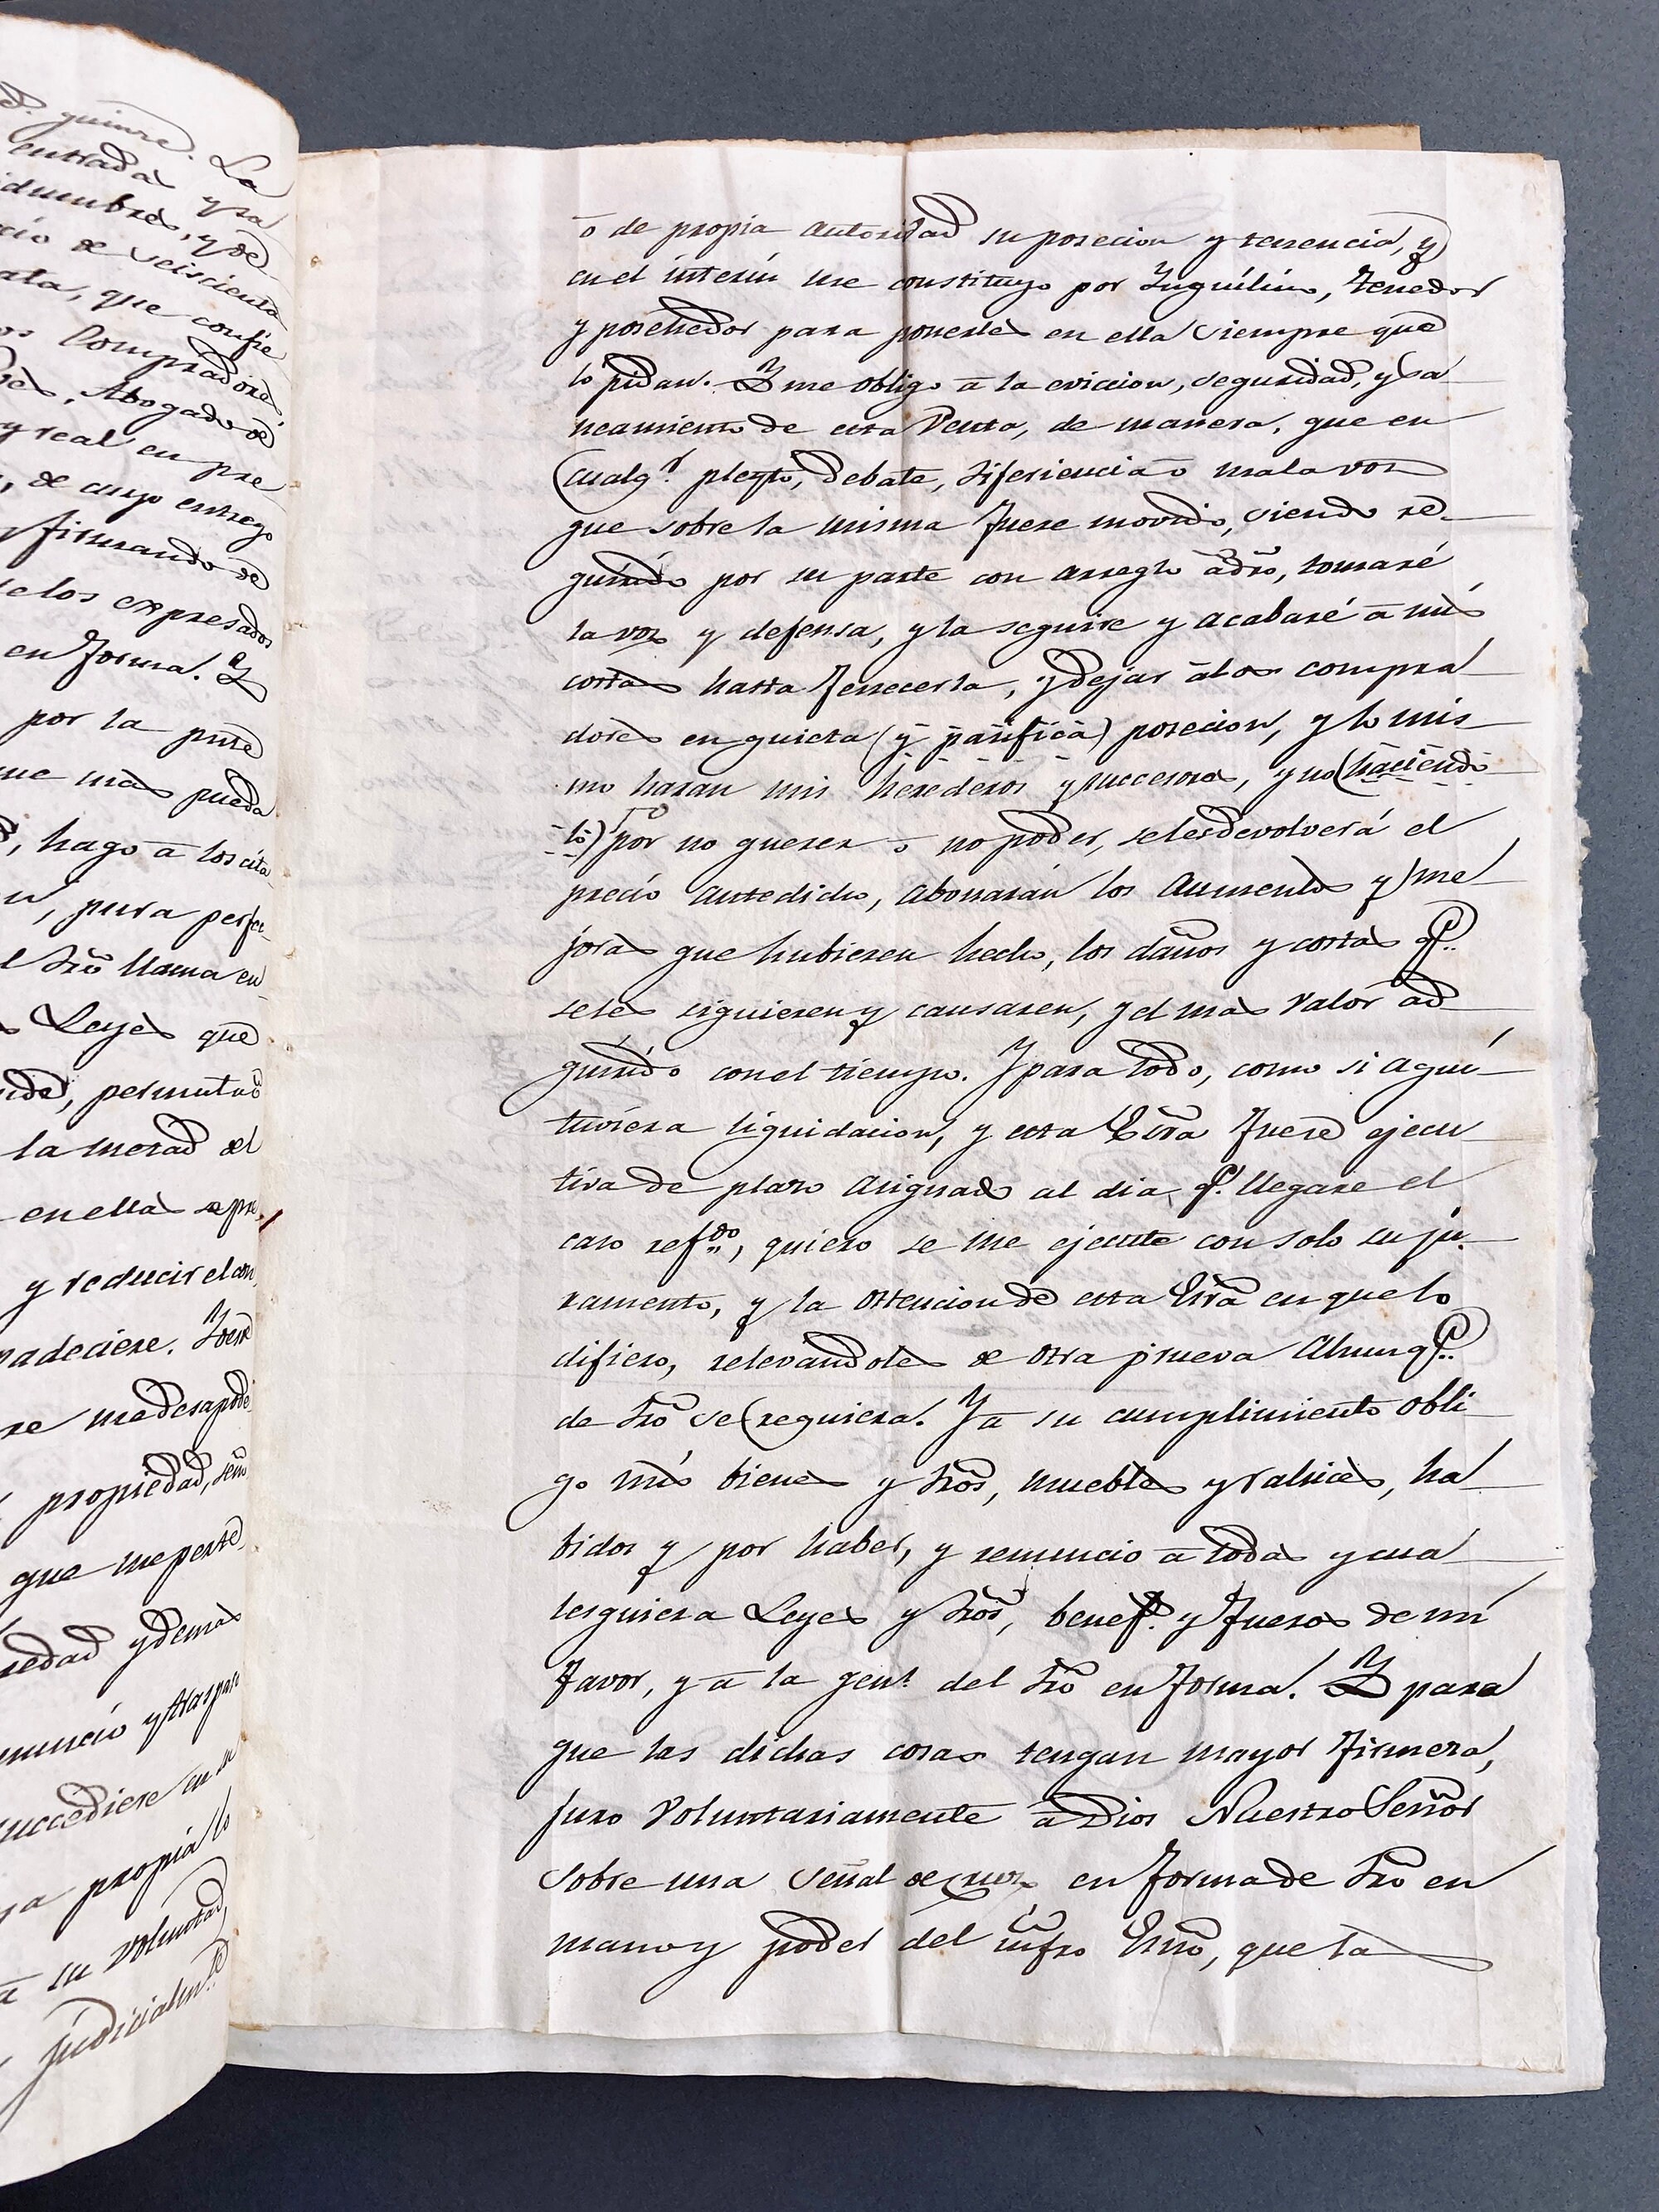 d. quinze. La
entrada y sa
idumbres, y de
cio de seiscienta
ata, que confie
os Compradores,
res, Abogado de
y real en pre
, de cuyo entrego
firmando de
elos expresados
en forma. Y
por la prẽte
me mas pueda
, hago â los cita
n, pura perfec
l drõ llama en
s Leyes que
nde, permutas
la metad del
en ellas se pre
y reducir el con
padeciere. Y desde
re me desapode
propiedad, seño
que me perte
sedad y demas
enuncio y traspaso
uccediere en su
ya propia lo
â su voluntad,
judicialm.te
ô de propia autoridad su posecion y tenencia, y
en el interin me constituyo por Ynquilino, tenedor
y posehedor para ponerles en ella siempre que
lo pidan. Y me obligo â la eviccion, seguridad, y sa
neamiento de esta Venta, de manera, que en
cualq.r pleyto, debate, diferiencia o mala voz
que sobre la misma fuere movido, siendo re
quirido por su parte con arreglo â drõ, tomaré
la voz y defensa, y la seguire y acabaré â mis
costas hasta fenecerla, y dejar âlos compra
dores en quieta (y pasifica) posecion, y lo mis
mo haran mis herederos y succesores, y no (haciendo
lo) por no querer o no poder, selesdevolverá el
precio antedicho, abonarán los aumentos y me
joras que hubieren hecho, los daños y costas q.e
seles siguieren y causaren, y el mas valor ad
quirido con el tiempo. Y para todo, como si aqui
tuviera liquidacion, y esta Escrã fuere ejecu
tiva de plazo asignado al dia q.e llegare el
caso ref.do, quiero se me ejecute con solo su ju
ramento, y la ostencion de esta Escrã en que lo
difiero, relevandoles de otra prueva Ahunq.e
de drõ se requiera. Y â su cumplimiento obli
go mis bienes y drõs, muebles y rahices, ha
bidos y por haber, y renuncio â todas y cua
lesquiera Leyes y drõs, benef.s y fueros de mi
favor, y â la gen.l del drõ en forma. Y para
que las dichas cosas tengan mayor firmeza,
juro Voluntariamente â Dios Nuestro Señor
sobre una señal de cruz en forma de drõ en
mano y poder del infro Esnõ, que la